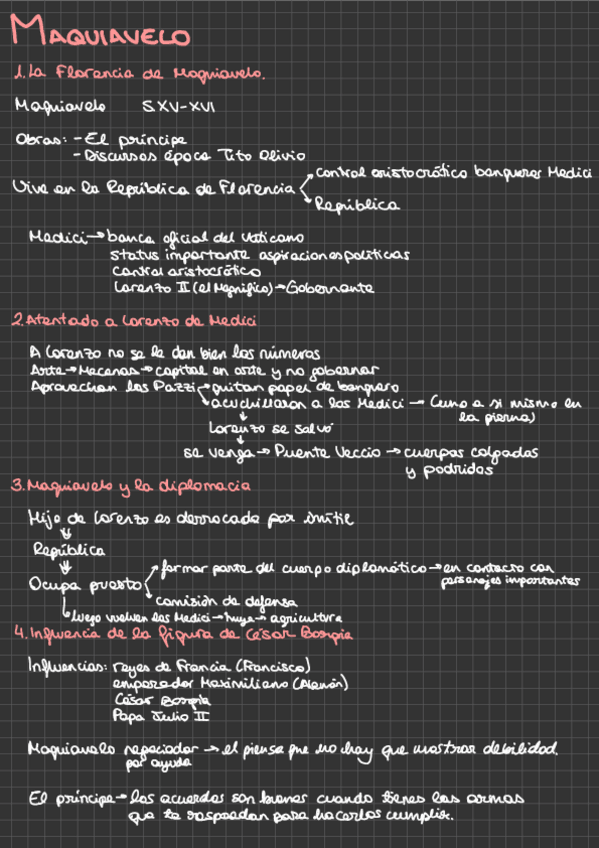 MAQUIAVELO
1. La Florencia de Maquiavelo.
Maquiavelo S XV-XVI
Obras: - El príncipe
- Discursos época Tito Olivio
Vive en la República de Florencia
control aristocrático banqueros Medici
República
Medici → banca oficial del Vaticano
status importante aspiraciones políticas
Control aristocrático
Lorenzo II (el Magnífico) → Gobernante
2. Atentado a Lorenzo de Medici
A Lorenzo no se le dan bien los números
Arte → Mecenas → capital en arte y no gobernar
Aprovechan los Pazzi → quitan papel de banquero
acuchillaron a los Medici → (uno a si mismo en la pierna)
Lorenzo se salvó
se venga → Puente Veccio → cuerpos colgados
y podridos
3. Maquiavelo y la diplomacia
Hijo de Lorenzo es derrocado por inútil
República
Ocupa puesto
formar parte del cuerpo diplomático → en contacto con
personajes importantes
comisión de defensa
luego vuelven los Medici → huye → agricultura
4. Influencia de la figura de César Borgia
Influencias: reyes de Francia (Francisco)
emperador Maximiliano (Alemán)
César Borgia
Papa Julio II
Maquiavelo negociador → el piensa que no hay que mostrar debilidad.
por ayuda
El príncipe → los acuerdos son buenos cuando tienes las armas
que te respaldan para hacerlos cumplir.